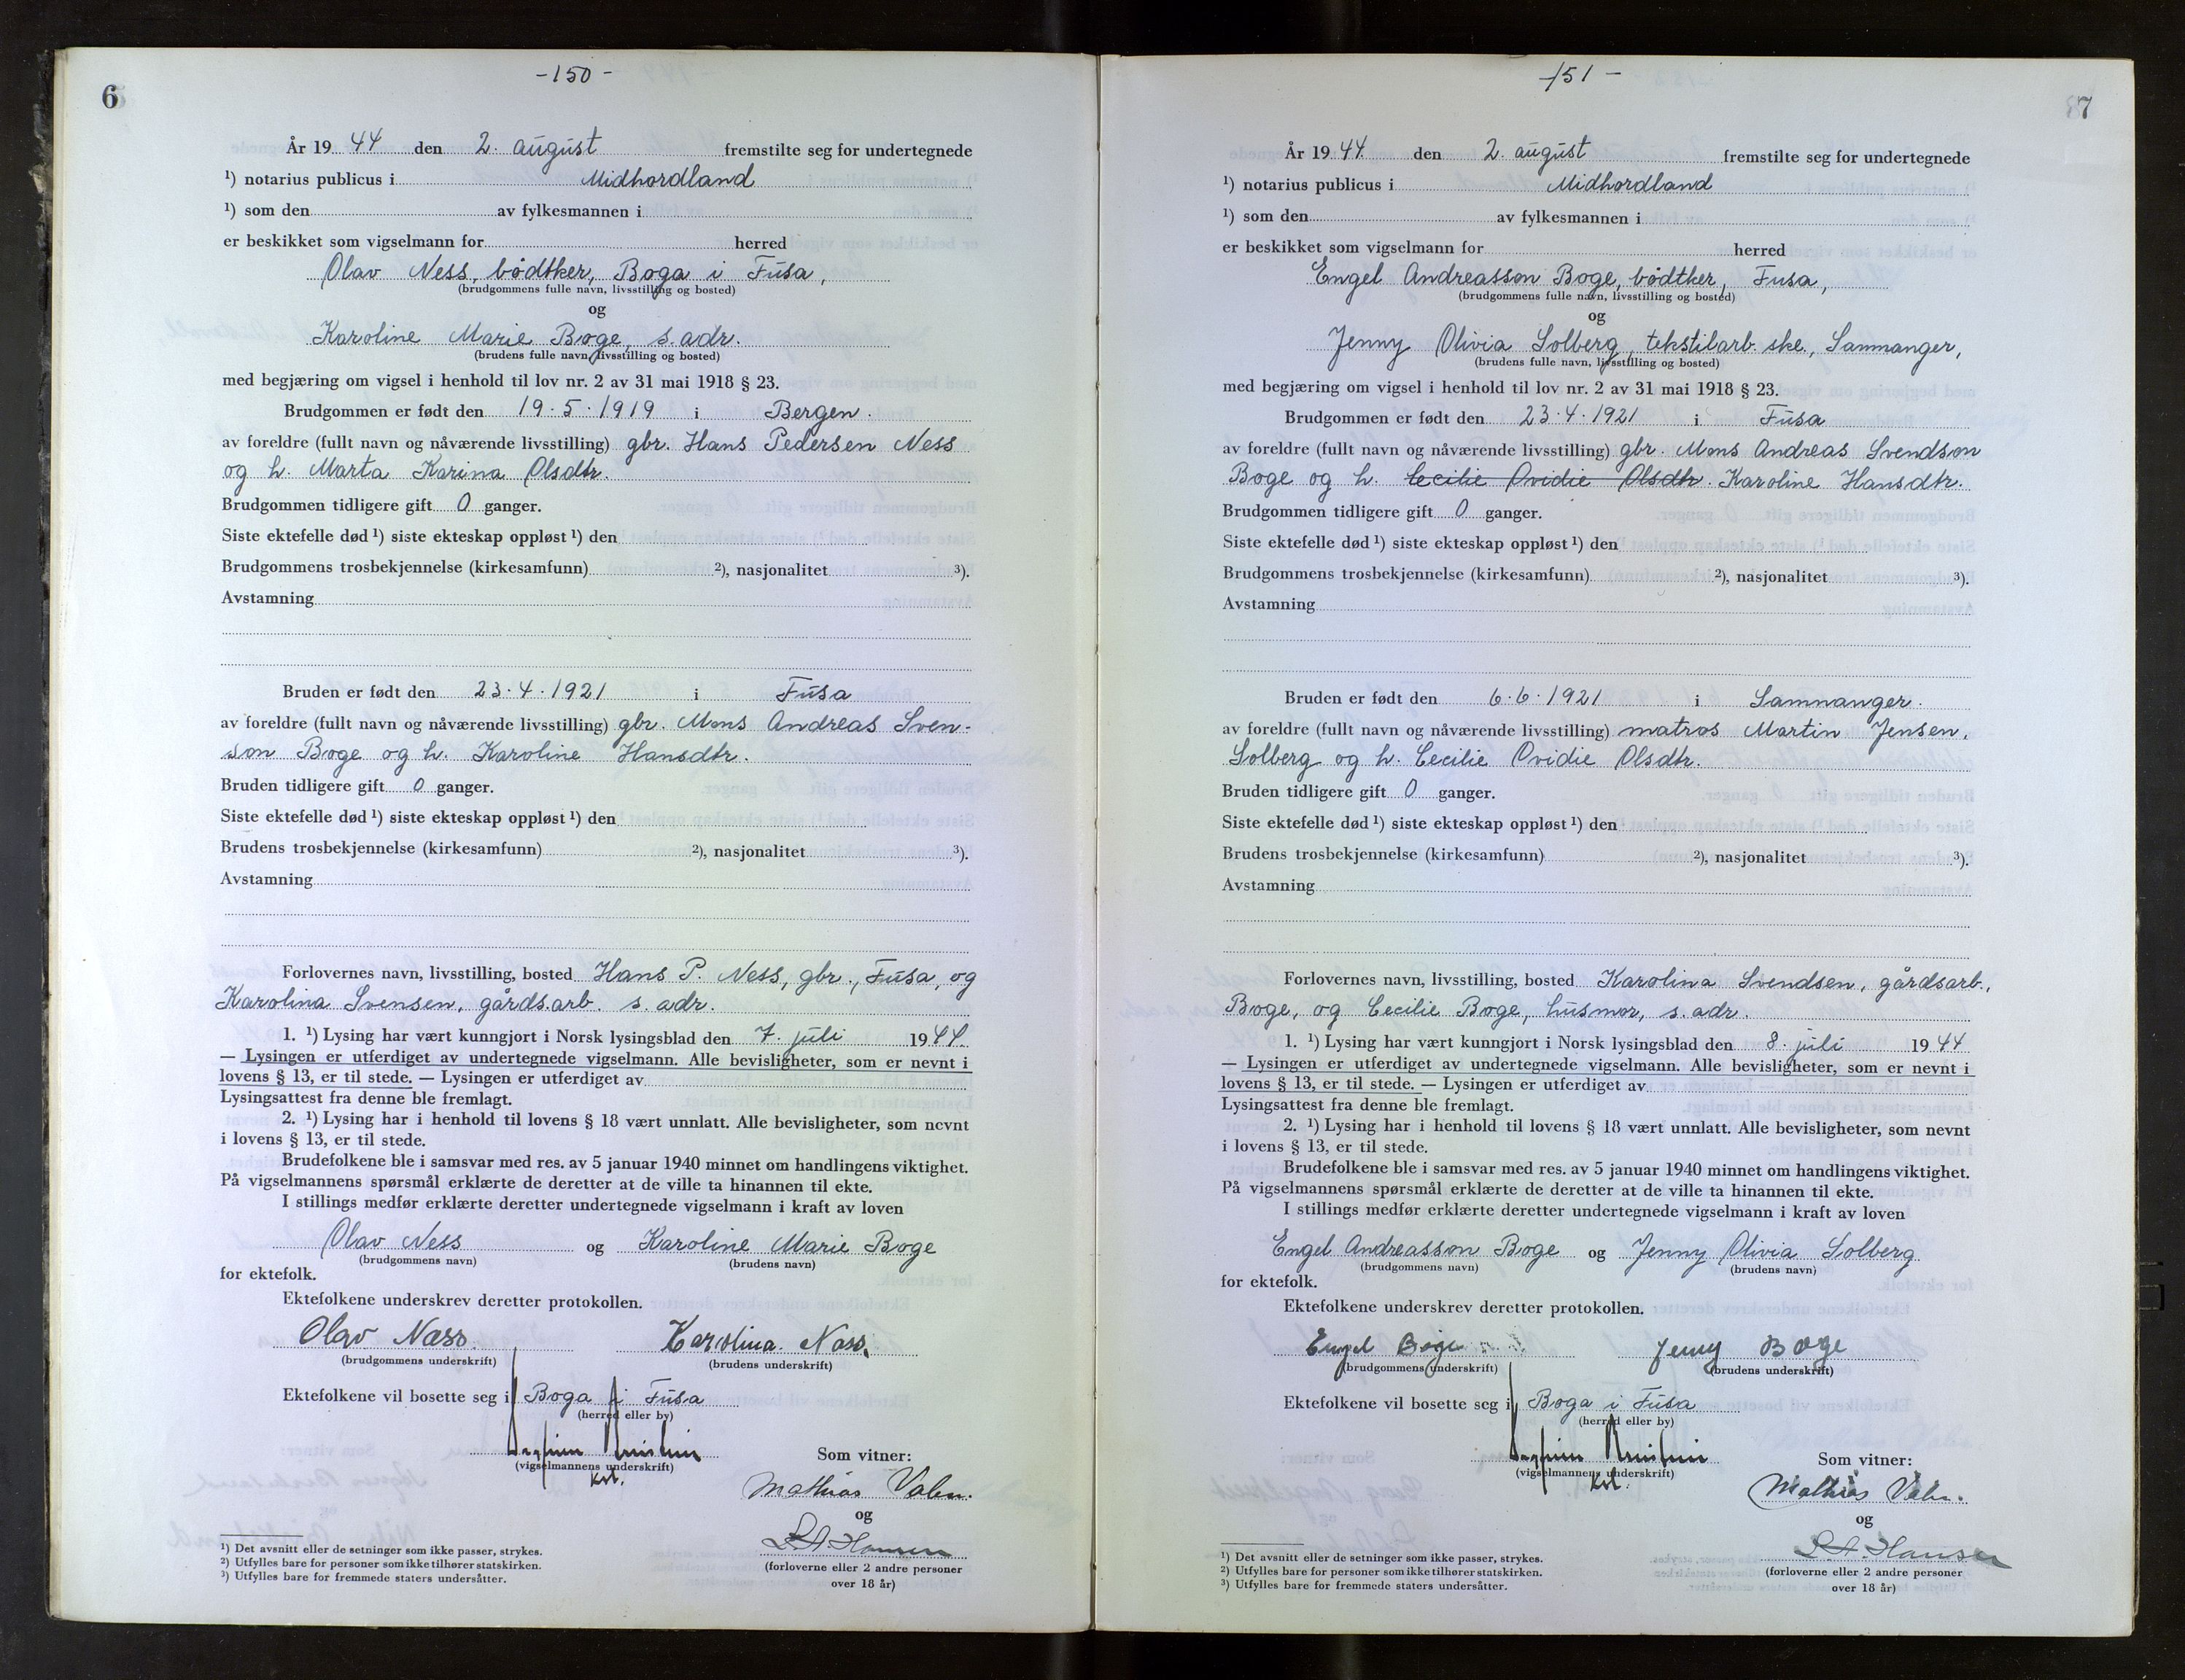 -150-
6
År 19 44 den 2. august fremstilte seg for undertegnede
¹) notarius publicus i Midhordland
¹) som den av fylkesmannen i
er beskikket som vigselmann for herred
Olav Ness, bødtker, Boga i Fusa,
(brudgommens fulle navn, livsstilling og bosted)
og
Karoline Marie Boge, s. adr.
(brudens fulle navn, livsstilling og bosted)
med begjæring om vigsel i henhold til lov nr. 2 av 31 mai 1918 § 23.
Brudgommen er født den 19.5.1919 i Bergen.
av foreldre (fullt navn og nåværende livsstilling) gbr. Hans Pedersen Ness
og h. Marta Karina Olsdtr.
Brudgommen tidligere gift 0 ganger.
Siste ektefelle død ¹) siste ekteskap oppløst ¹) den
Brudgommens trosbekjennelse (kirkesamfunn) ²), nasjonalitet ³).
Avstamning
Bruden er født den 23.4.1921 i Fusa
av foreldre (fullt navn og nåværende livsstilling) gbr. Mons Andreas Sven-
son Boge og h. Karoline Hansdtr.
Bruden tidligere gift 0 ganger.
Siste ektefelle død ¹) siste ekteskap oppløst ¹) den
Brudens trosbekjennelse (kirkesamfunn) ²), nasjonalitet ³).
Avstamning
Forlovernes navn, livsstilling, bosted Hans P. Ness, gbr., Fusa, og
Karolina Svensen, gårdsarb. s. adr.
1. ¹) Lysing har vært kunngjort i Norsk lysingsblad den 7. juli 1944
— Lysingen er utferdiget av undertegnede vigselmann. Alle bevisligheter, som er nevnt i
lovens § 13, er til stede. — Lysingen er utferdiget av
Lysingsattest fra denne ble fremlagt.
2. ¹) Lysing har i henhold til lovens § 18 vært unnlatt. Alle bevisligheter, som nevnt
i lovens § 13, er til stede.
Brudefolkene ble i samsvar med res. av 5 januar 1940 minnet om handlingens viktighet.
På vigselmannens spørsmål erklærte de deretter at de ville ta hinannen til ekte.
I stillings medfør erklærte deretter undertegnede vigselmann i kraft av loven
Olav Ness og Karoline Marie Boge
(brudgommens navn) (brudens navn)
for ektefolk.
Ektefolkene underskrev deretter protokollen.
Olav Næss. Karolina. Næss.
(brudgommens underskrift) (brudens underskrift)
Ektefolkene vil bosette seg i Boga i Fusa
(herred eller by)
(vigselmannens underskrift)
kst.
Som vitner:
Mathias Valen.
og
L A Hansen
(forloverne eller 2 andre personer
over 18 år)
¹) Det avsnitt eller de setninger som ikke passer, strykes.
²) Utfylles bare for personer som ikke tilhører statskirken.
³) Utfylles bare for fremmede staters undersåtter.
-151-
7
År 19 44. den 2. august fremstilte seg for undertegnede
¹) notarius publicus i Midhordland
¹) som den av fylkesmannen i
er beskikket som vigselmann for herred
Engel Andreasson Boge, bødtker, Fusa,
(brudgommens fulle navn, livsstilling og bosted)
og
Jenny Olivia Solberg, tekstilarb.ske., Samnanger,
(brudens fulle navn, livsstilling og bosted)
med begjæring om vigsel i henhold til lov nr. 2 av 31 mai 1918 § 23.
Brudgommen er født den 23.4.1921 i Fusa
av foreldre (fullt navn og nåværende livsstilling) gbr. Mons Andreas Svendson
Boge og h. Cecilie Ovidie Olsdtr. Karoline Hansdtr.
Brudgommen tidligere gift 0 ganger.
Siste ektefelle død ¹) siste ekteskap oppløst ¹) den
Brudgommens trosbekjennelse (kirkesamfunn) ²), nasjonalitet ³).
Avstamning
Bruden er født den 6.6.1921 i Samnanger.
av foreldre (fullt navn og nåværende livsstilling) matros Martin Jensen,
Solberg og h. Cecilie Ovidie Olsdtr.
Bruden tidligere gift 0 ganger.
Siste ektefelle død ¹) siste ekteskap oppløst ¹) den
Brudens trosbekjennelse (kirkesamfunn) ²), nasjonalitet ³).
Avstamning
Forlovernes navn, livsstilling, bosted Karolina Svendsen, gårdsarb.,
Boge, og Cecilie Boge, husmor, s. adr.
1. ¹) Lysing har vært kunngjort i Norsk lysingsblad den 8. juli 1944
— Lysingen er utferdiget av undertegnede vigselmann. Alle bevisligheter, som er nevnt i
lovens § 13, er til stede. — Lysingen er utferdiget av
Lysingsattest fra denne ble fremlagt.
2. ¹) Lysing har i henhold til lovens § 18 vært unnlatt. Alle bevisligheter, som nevnt
i lovens § 13, er til stede.
Brudefolkene ble i samsvar med res. av 5 januar 1940 minnet om handlingens viktighet.
På vigselmannens spørsmål erklærte de deretter at de ville ta hinannen til ekte.
I stillings medfør erklærte deretter undertegnede vigselmann i kraft av loven
Engel Andreasson Boge og Jenny Olivia Solberg
(brudgommens navn) (brudens navn)
for ektefolk.
Ektefolkene underskrev deretter protokollen.
Engel Boge Jenny Boge
(brudgommens underskrift) (brudens underskrift)
Ektefolkene vil bosette seg i Boga i Fusa
(herred eller by)
(vigselmannens underskrift)
kst.
Som vitner:
Mathias Valen.
og
L.A. Hansen
(forloverne eller 2 andre personer
over 18 år)
¹) Det avsnitt eller de setninger som ikke passer, strykes.
²) Utfylles bare for personer som ikke tilhører statskirken.
³) Utfylles bare for fremmede staters undersåtter.